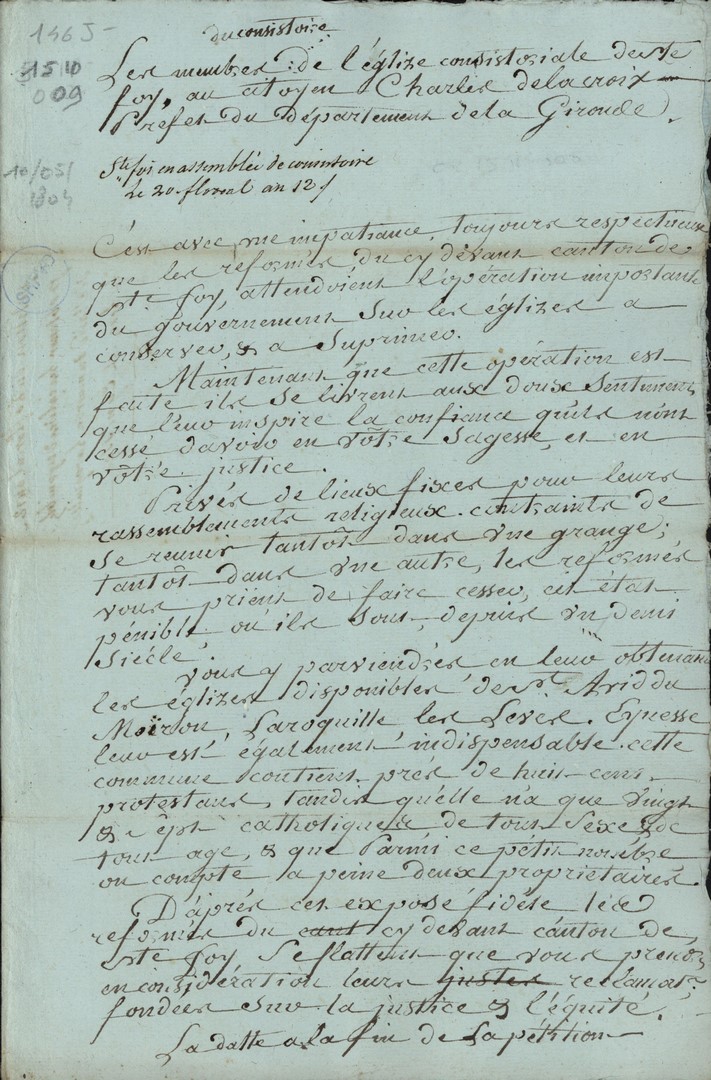 1465-
31510
009
10/05/
1804
du consistoire
Les membres de l'églize consistoriale de Ste
foy, au citoyen Charles delacroix
Préfet du département de la Gironde.
Ste foi en assemblée de consistoire
Le 20 floreal an 12 /
C'est avec une impatiance, toujours respectueuse
que les réformés du cy devant canton de
Ste foy, attendoient l'opération important
du gouvernement sur les églizes a
conserver, & a Suprimer.
Maintenant que cette opération est
faite ils se livrent aux doux sentiments
que leur inspire la confiance qu'ils n'ont
cessé d'avoir en vôtre sagesse, et en
vôtre justice.
Privés de lieux fixes pour leurs
rassemblements religieux. contraints de
se reunir tantôt dans une grange;
tantôt dans une autre, les reformés
vous prient de faire cesser, cet état
pénible, ou ils sont, depuis un demi
siécle.
Vous y parviendrés en leur obtenant
les églizes disponibles de St. Avid du
Moiron, Laroquille les Leves. Eynesse
leur est également indispensable. cette
commune contient prés de huit cens
protestans, tandis qu'elle n'a que vingt
& sept catholiques de tout sexe & de
tout age, & que Parmi ce petit nombre
on compte a peine deux propriétaires.
D'aprés cet exposé fidéle les
reformés du cant cy devant canton de
Ste foy, se flattent que vous prendrés
en considération leurs justes reclamat.
fondées sur la justice & l'équité.
La datte a la fin de la pétition